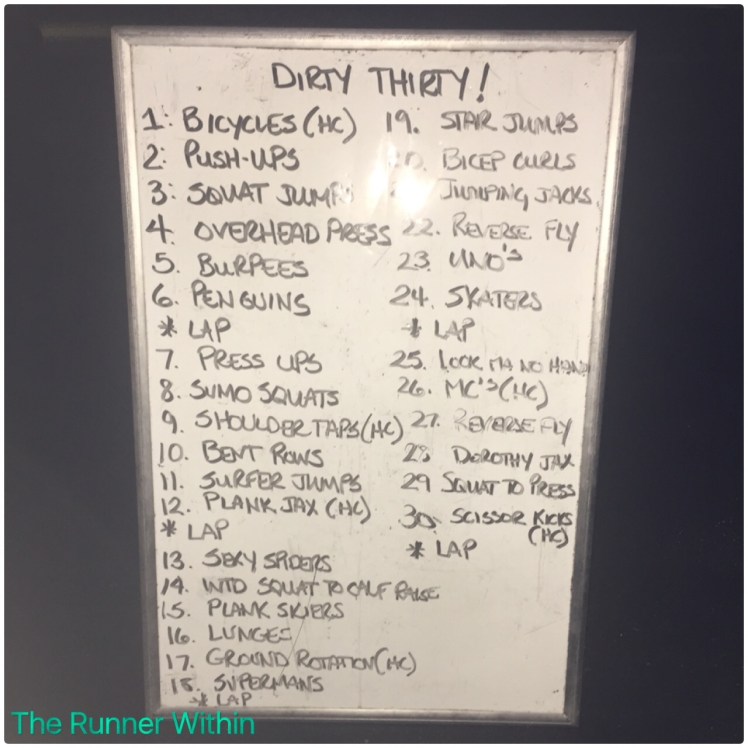 DIRTY THIRTY!
1: BICYCLES (HC)
2: PUSH-UPS
3: SQUAT JUMPS
4. OVERHEAD PRESS
5. BURPEES
6. PENGUINS
* LAP
7. PRESS UPS
8. SUMO SQUATS
9. SHOULDER TAPS (HC)
10. BENT ROWS
11. SURFER JUMPS
12. PLANK JAX (HC)
* LAP
13. SEXY SPIDERS
14. WTD SQUAT TO CALF RAISE
15. PLANK SKIERS
16. LUNGES
17. GROUND ROTATION (HC)
18. SUPERMANS
* LAP
19. STAR JUMPS
20. BICEP CURLS
JUMPING JACKS
22. REVERSE FLY
23. UNO'S
24. SKATERS
* LAP
25. LOOK MA NO HANDS
26. MC'S (HC)
27. REVERSE FLY
28 DOROTHY JAX
29 SQUAT TO PRESS
30. SCISSOR KICKS
(HC)
* LAP
The Runner Within